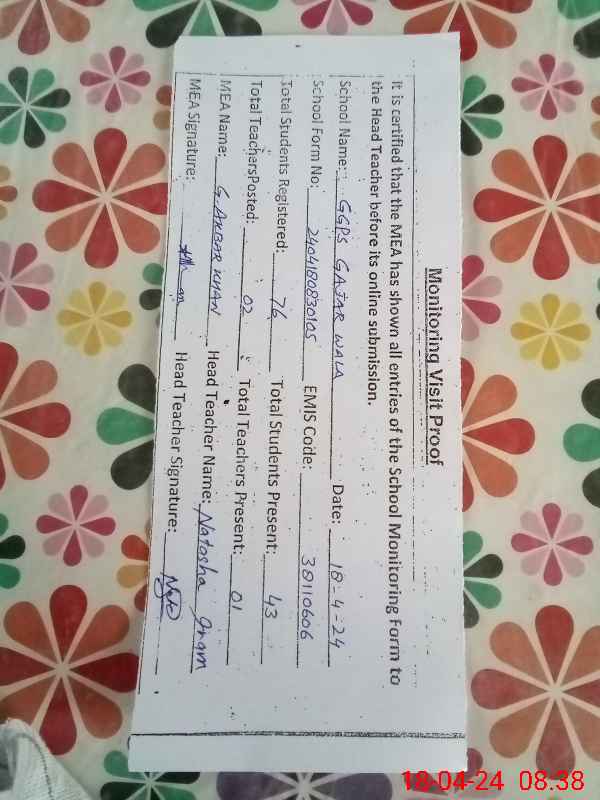 Monitoring Visit Proof
It is certified that the MEA has shown all entries of the School Monitoring Form to
the Head Teacher before its online submission.
School Name: GGPS GAJAR WALA Date: 18-4-24
School Form No: 2404180830105 EMIS Code: 38110606
Total Students Registered: 76 Total Students Present: 43
Total TeachersPosted: 02 Total Teachers Present: 01
MEA Name: G. AKBAR KHAN Head Teacher Name: Natosha Iram
MEA Signature: Head Teacher Signature:
18-04-24 08:38